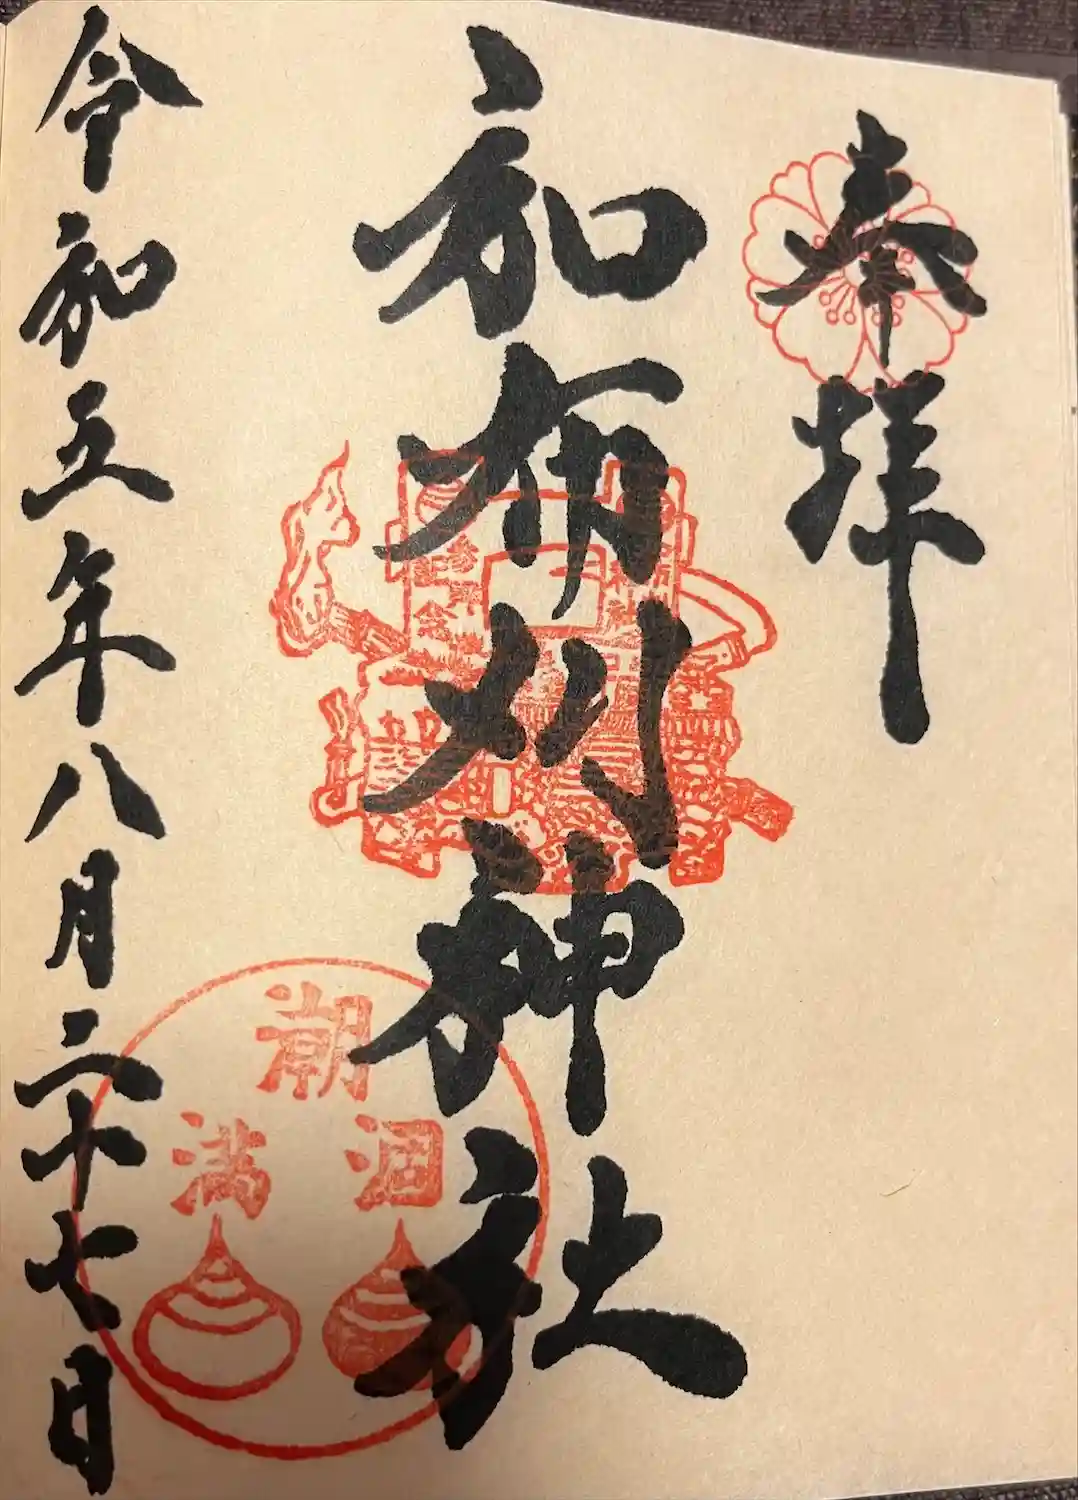 奉拝
和布刈神社
潮
涸
満
令和五年八月二十七日